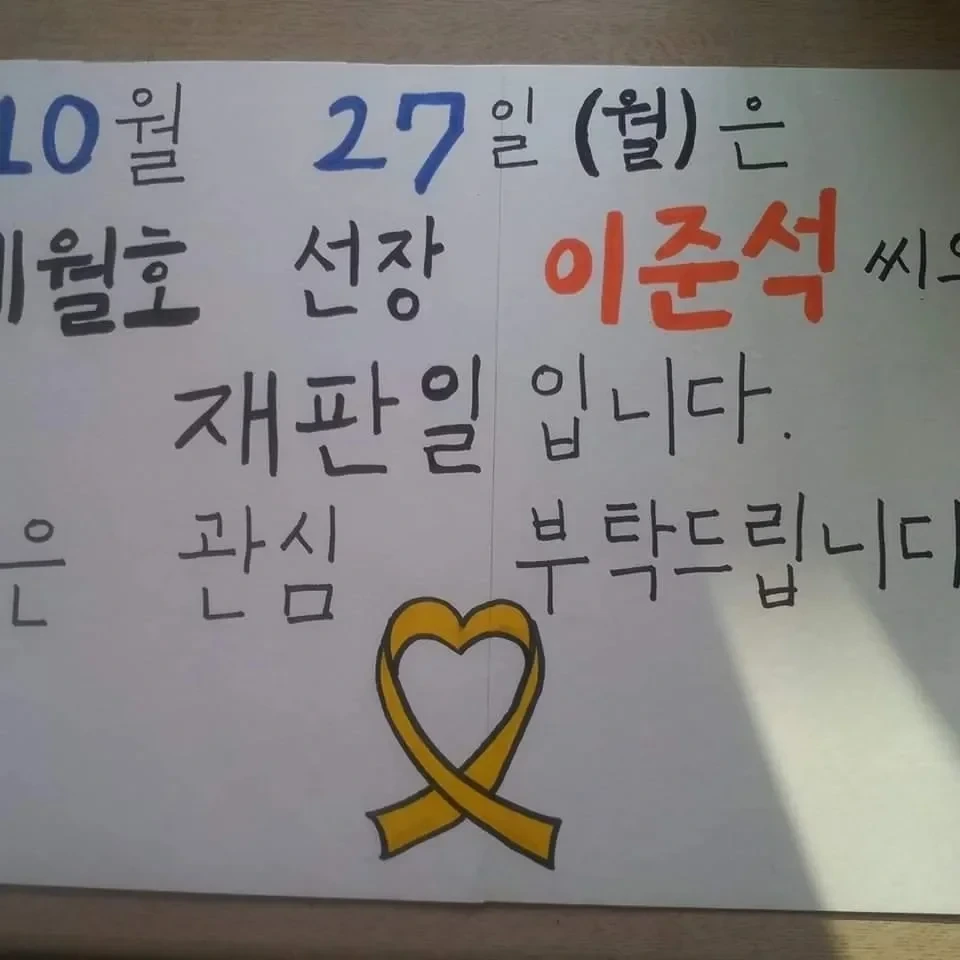 10월 27일 (월)은
세월호 선장 이준석 씨의
재판일입니다.
은 관심 부탁드립니다